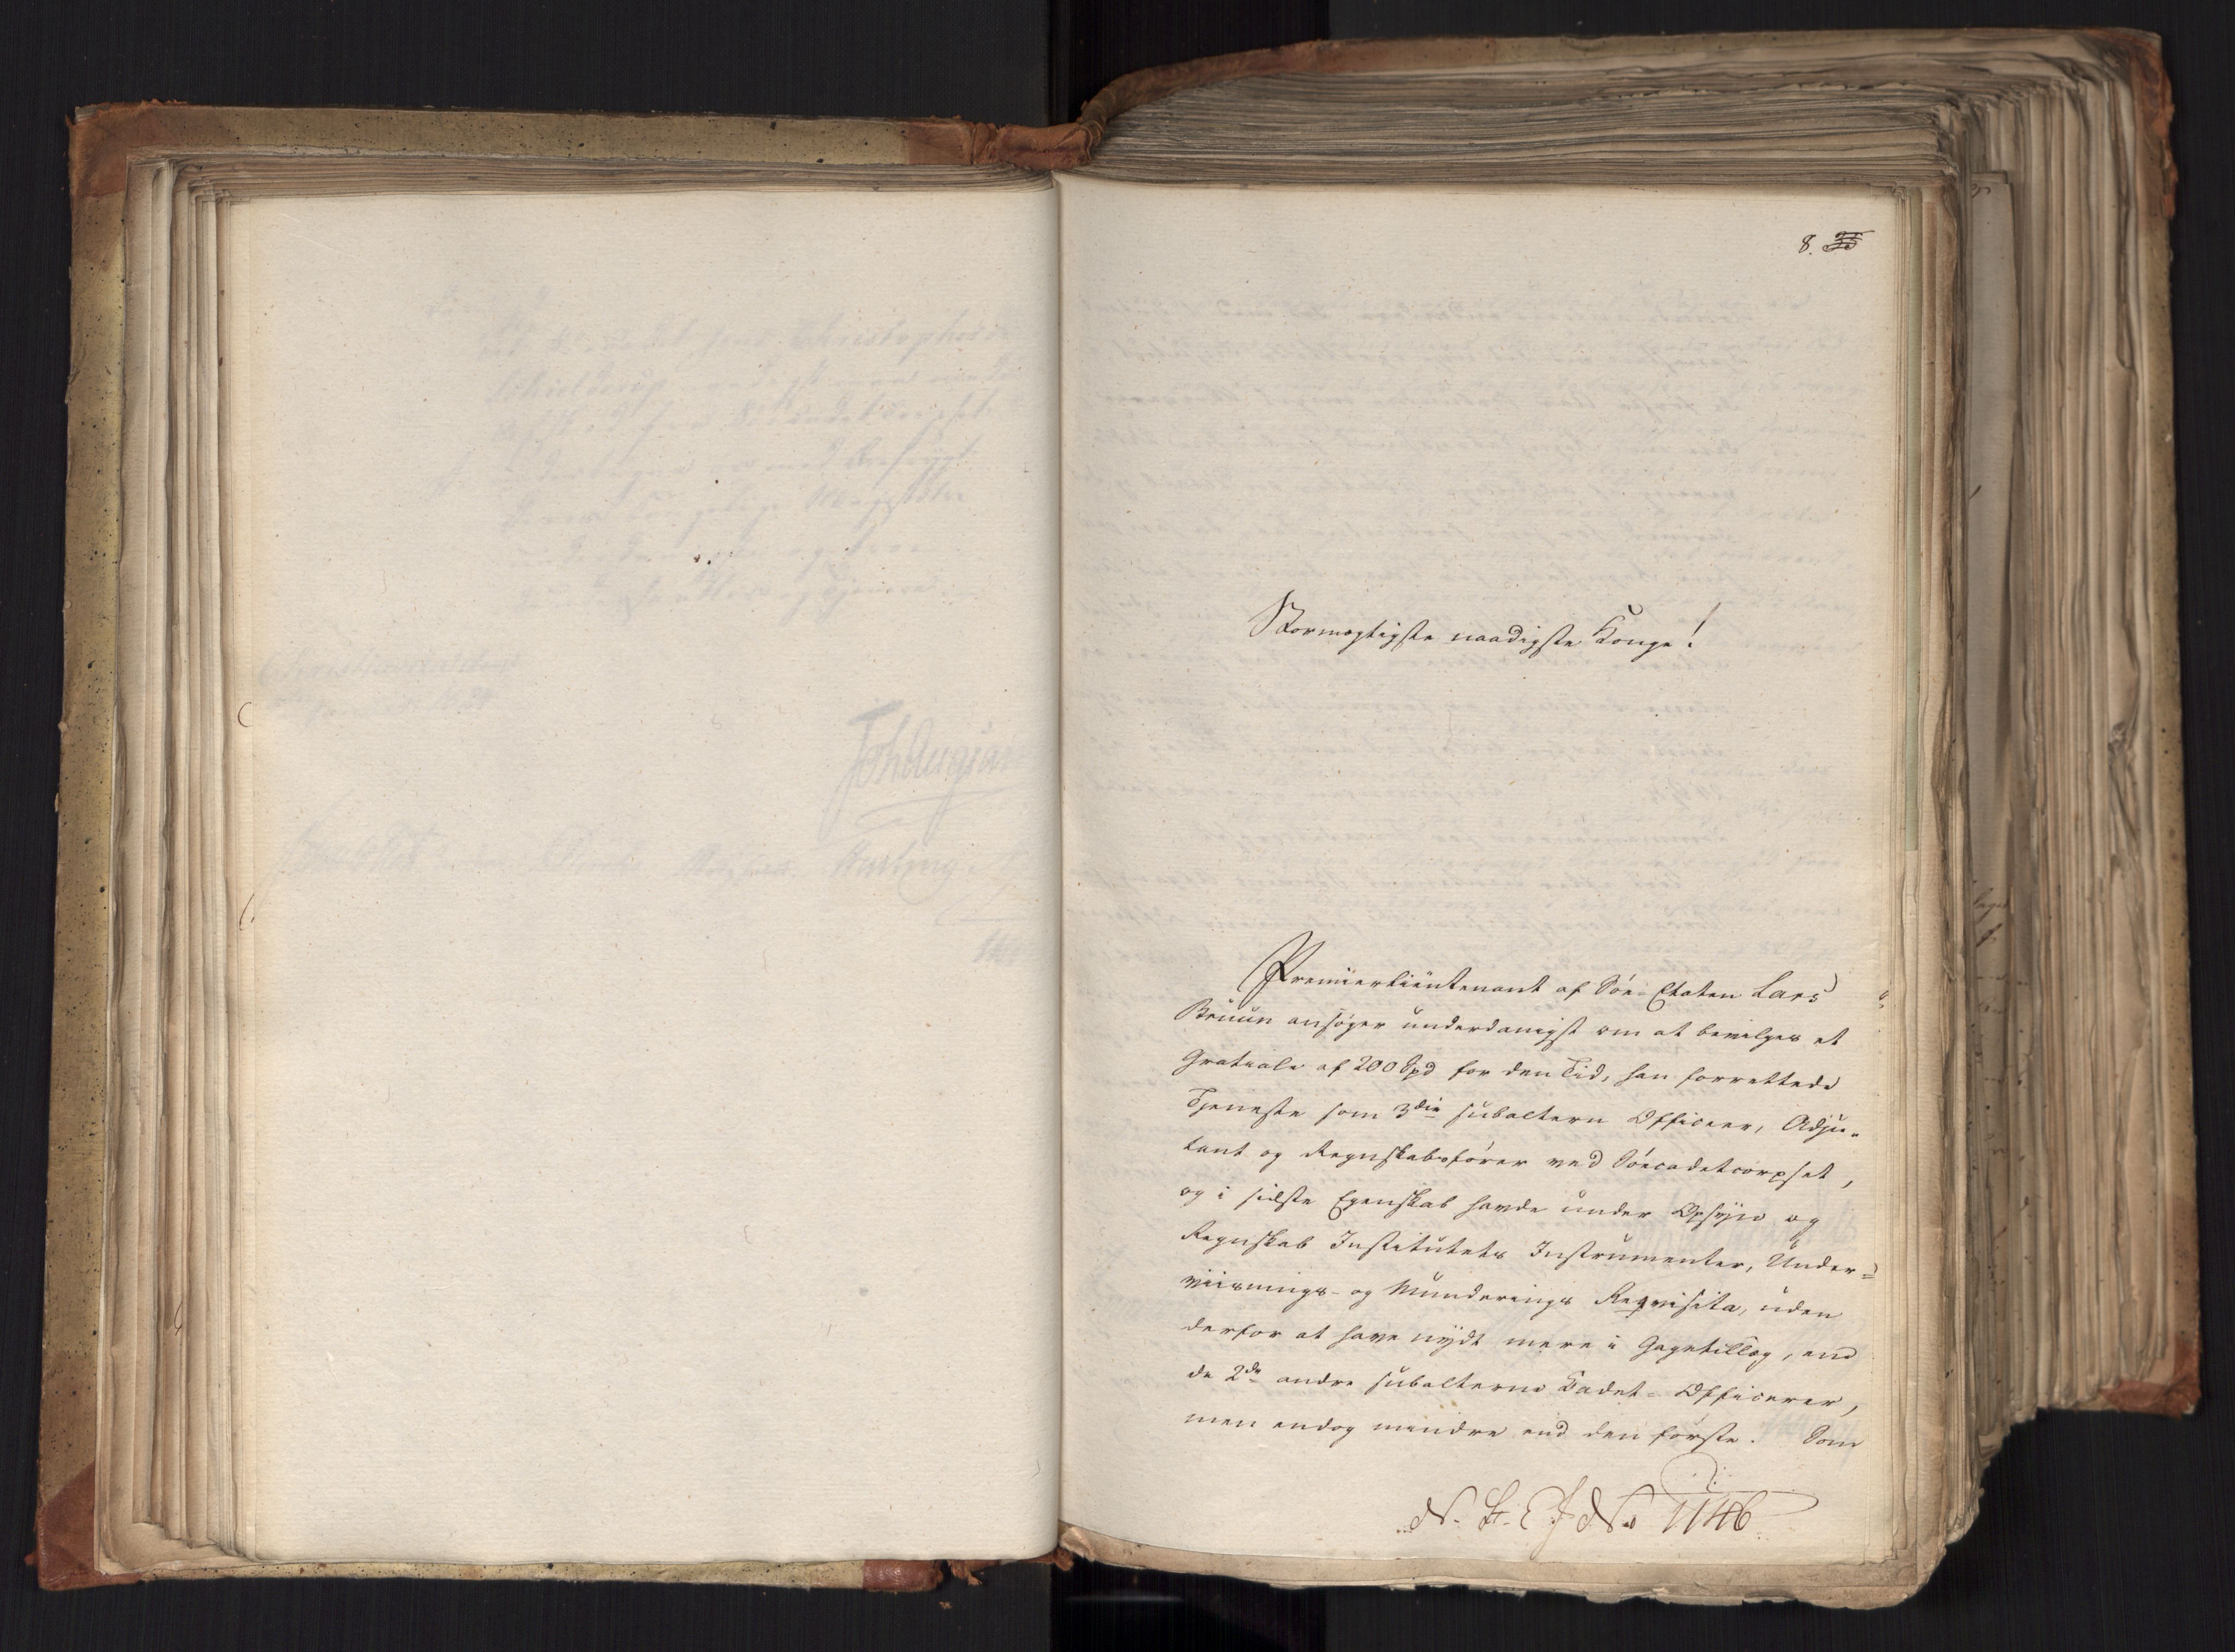 8. 35
Stormægtigste naadigste Konge!
Premierlieutenant af Søe-Etaten Lars
Bruun ansøger underdanigst om at bevilges et
Gratiale af 200 Spd for den Tid, han forrettede
Tjeneste som 3die subaltern Officeer, Adju-
tant og Regnskabsfører ved Søecadetcorpset,
og i sidste Egenskab havde under Opsyn og
Regnskab Institutets Instrumenter, Under-
viisnings- og Munderings Reqvisita, uden
derfor at have nydt mere i Gagetillæg, end
de 2de andre subalterne Cadet-Officerer,
men endog mindre end den første. Som
N. St. E. J No 1146